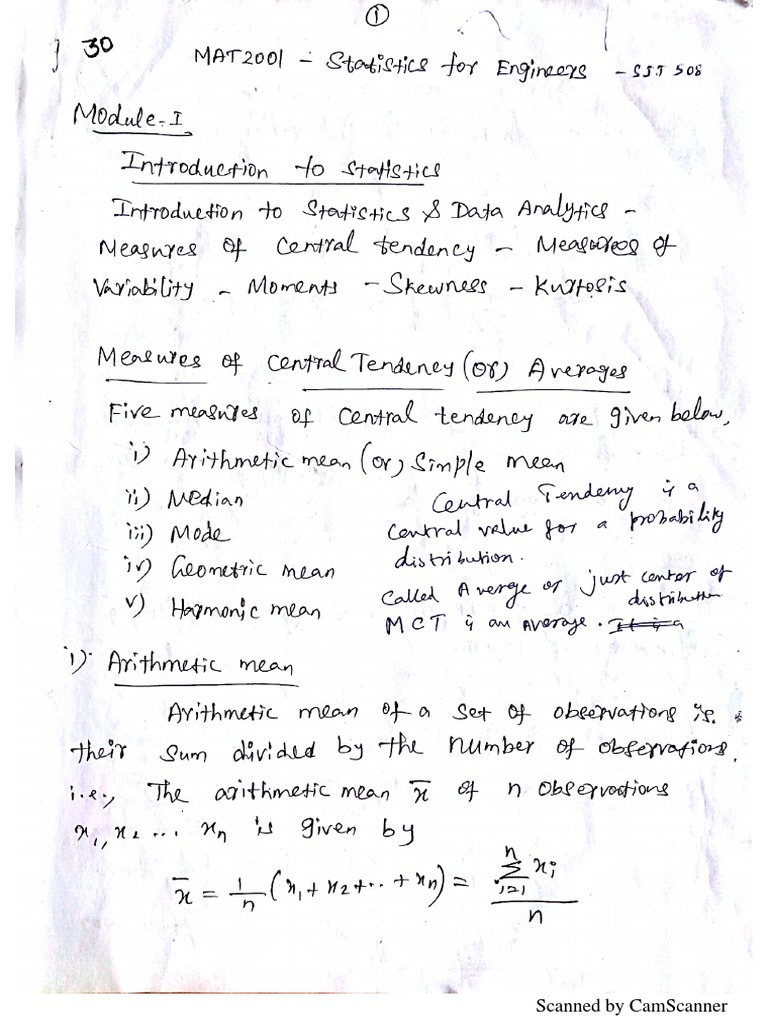 ①
30
MAT2001 - Statistics for Engineers - SJT 508
Module-I
Introduction to Statistics
Introduction to Statistics & Data Analytics -
Measures of Central tendency - Measures of
Variability - Moments - Skewness - Kurtosis
Measures of Central Tendency (or) Averages
Five measures of Central tendency are given below,
i) Arithmetic mean (or) Simple mean
ii) Median
iii) Mode
iv) Geometric mean
v) Harmonic mean
Central Tendency is a
central value for a probability
distribution.
Called Average or just center of
distribution
MCT is an Average. It is a
i) Arithmetic mean
Arithmetic mean of a set of observations is
their sum divided by the number of observations.
i.e., The arithmetic mean x̄ of n observations
x₁, x₂ ... xₙ is given by
x̄ = 1/n (x₁ + x₂ + ... + xₙ) = ∑ᵢ₌₁ⁿ xᵢ / n
Scanned by CamScanner